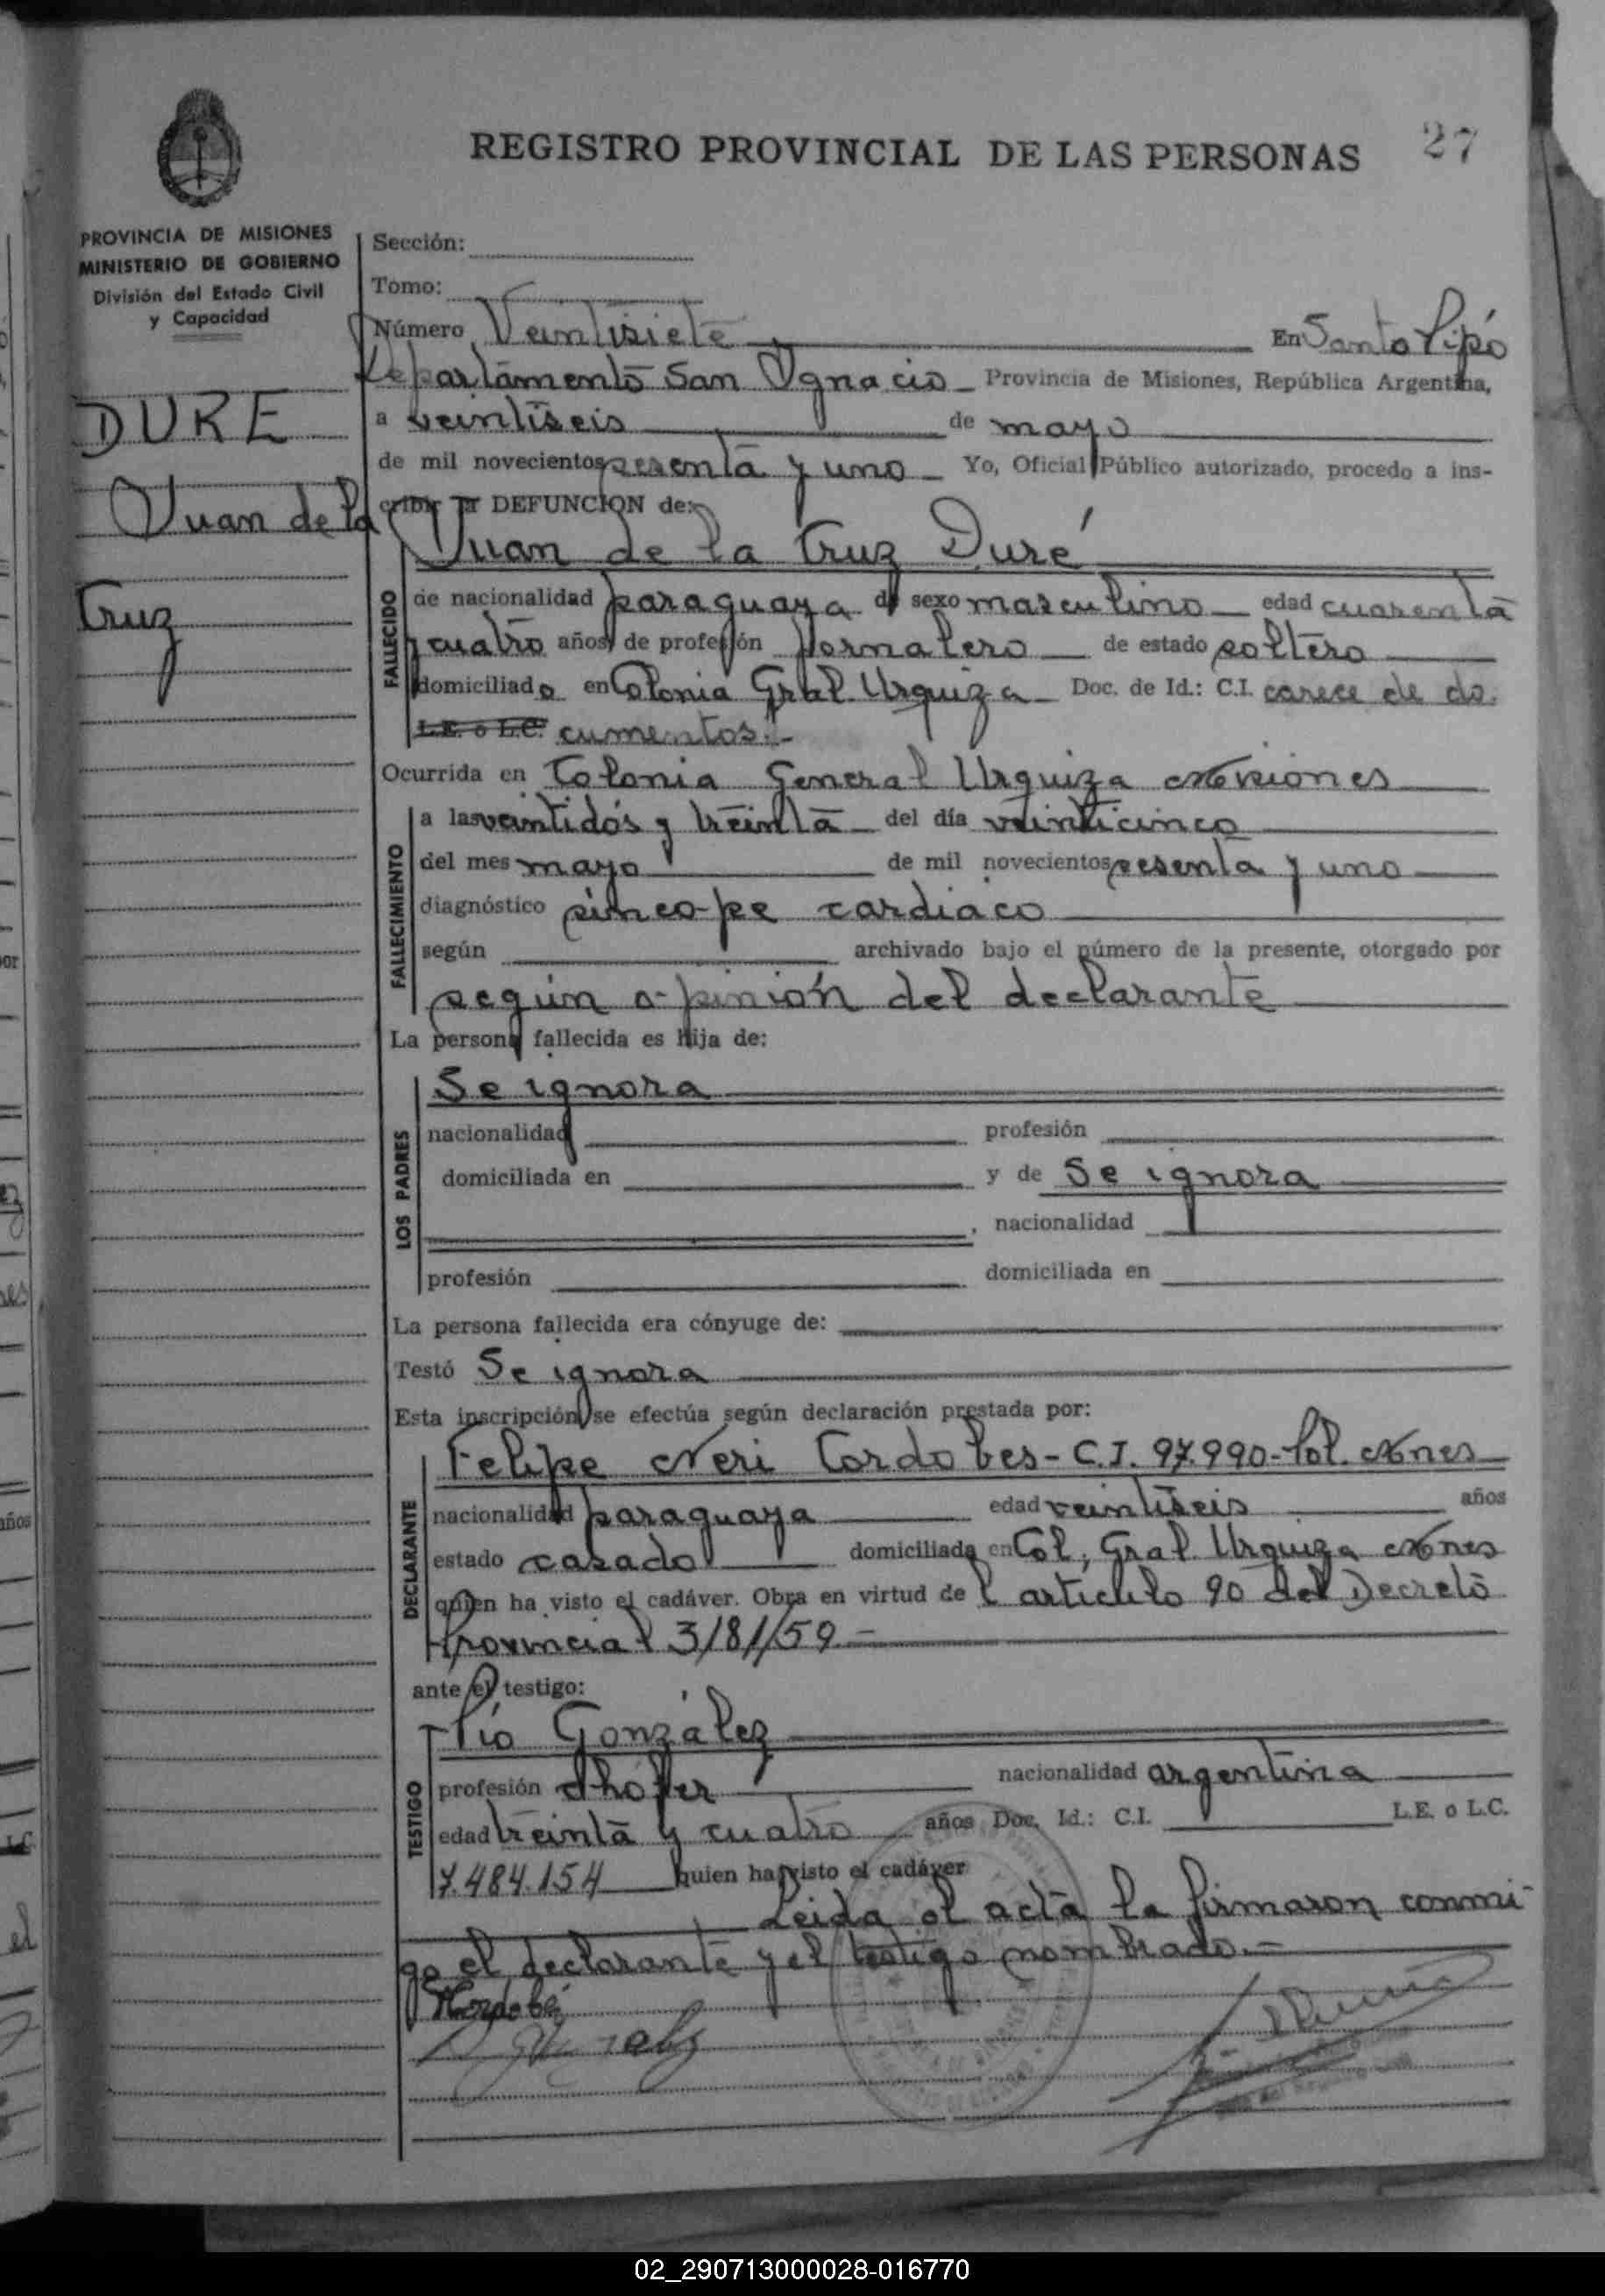 REGISTRO PROVINCIAL DE LAS PERSONAS 27
PROVINCIA DE MISIONES
MINISTERIO DE GOBIERNO
División del Estado Civil
y Capacidad
DURE
Juan de la
Cruz
Sección:
Tomo:
Número Veintisiete En Santo Pipó
Departamento San Ignacio Provincia de Misiones, República Argentina,
a veintiseis de mayo
de mil novecientos sesenta y uno Yo, Oficial Público autorizado, procedo a ins-
cribir la DEFUNCION de:
Juan de la Cruz Duré
FALLECIDO
de nacionalidad paraguaya de sexo masculino edad cuarenta
y cuatro años, de profesión Jornalero de estado soltero
domiciliado en Colonia Gral. Urquiza Doc. de Id.: C.I. carece de do.
L.E. o L.C. cumentos.-
Ocurrida en Colonia General Urquiza Misiones
FALLECIMIENTO
a las veintidós y treinta del día veinticinco
del mes mayo de mil novecientos sesenta y uno
diagnóstico síncope cardiaco
según archivado bajo el número de la presente, otorgado por
según opinión del declarante
La persona fallecida es hija de:
LOS PADRES
Se ignora
nacionalidad profesión
domiciliada en y de Se ignora
, nacionalidad
profesión domiciliada en
La persona fallecida era cónyuge de:
Testó Se ignora
Esta inscripción se efectúa según declaración prestada por:
DECLARANTE
Felipe Neri Cordobes - C.I. 97.990 - Pol. Mnes
nacionalidad paraguaya edad veintiseis años
estado casado domiciliada en Col. Gral. Urquiza Mnes
quien ha visto el cadáver. Obra en virtud de l artículo 90 del Decreto
Provincial 3181/59.-
ante el testigo:
TESTIGO
Pío González
profesión chófer nacionalidad argentina
edad treinta y cuatro años Doc. Id.: C.I. L.E. o L.C.
7.484.154 quien ha visto el cadáver
Leida el acta la firmaron conmi-
go el declarante y el testigo nombrado.-
02_290713000028-016770